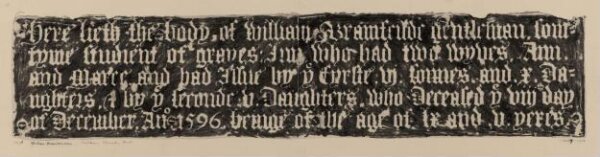 Here lieth the body of William Bramfeilde gentleman, som-
tyme student of graves Inn who had two wyves, Ann
and Marie, and had Issue by yͤ fyrste, vi, sonnes, and, x, Da-
ughters, & by yͤ seconde, v, Daughters, who Deceased yͤ viii day
of December, An͠, 1596, beinge of the age of lx and, v, yeres,